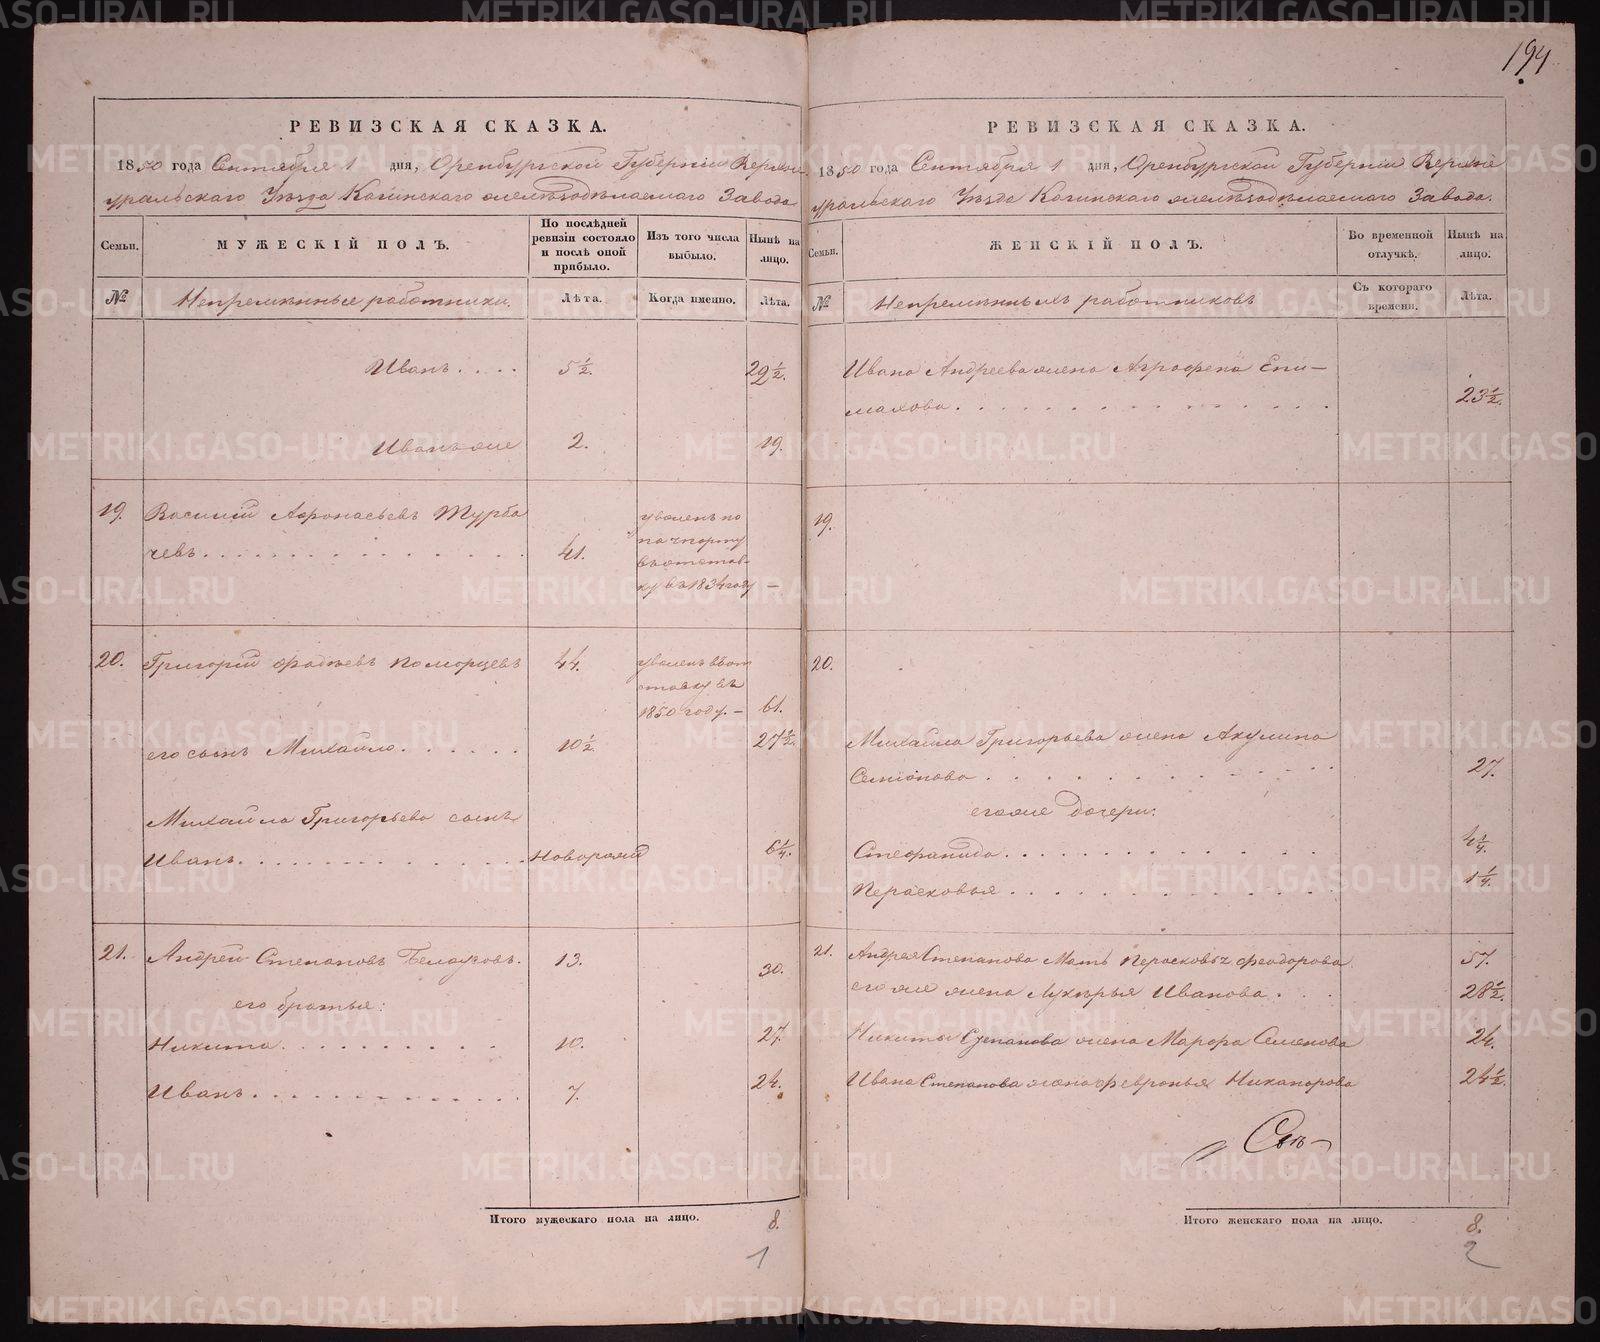 194
РЕВИЗСКАЯ СКАЗКА.
1850 года Сентября 1 дня, Оренбургской Губерніи Верхне
уральскаго Уѣзда Кагинскаго желѣзодѣлаемаго Завода
Семьи.
МУЖЕСКІЙ ПОЛЪ.
По послѣдней ревизіи состояло и послѣ оной прибыло.
Изъ того числа выбыло.
Нынѣ на лицо.
№
Непремѣнные работники.
Лѣта.
Когда именно.
Лѣта.
Иванъ . . . . 5½. 29½.
Иванъ же 2. 19.
19. Василій Афонасьевъ Турба
чевъ. . . . . . . . . . . 41.
уволенъ по
пачпорту
въ отстав-
ку въ 1834 году —
20. Григорій Фадѣевъ Поморцевъ 44.
уволенъ въ от
ставку въ
1850 году. — 61.
его сынъ Михайло. . . . . . 10½ 27½.
Михайла Григорьева сынъ
Иванъ. . . . . . . . . . . Новорожд 6¼.
21. Андрей Степановъ Белоусовъ. 13. 30.
его братья:
Никита. . . . . . . . . 10. 27.
Иванъ. . . . . . . . . . 7. 24.
Итого мужескаго пола на лицо. 8.
1
РЕВИЗСКАЯ СКАЗКА.
1850 года Сентября 1 дня, Оренбургской Губерніи Верхне
уральскаго Уѣзда Кагинскаго желѣзодѣлаемаго Завода.
Семьи.
ЖЕНСКІЙ ПОЛЪ.
Во временной отлучкѣ.
Нынѣ на лицо.
№
Непремѣнныхъ работниковъ
Съ котораго времени.
Лѣта.
Ивана Андреева жена Аграфена Епи—
махова. . . . . . . . . . . . 23½.
19.
20.
Михайла Григорьева жена Акулина
Семіонова . . . . . . . . . . . 27.
его же дочери:
Стефанида. . . . . . . . . . . 4¼.
Перасковья . . . . . . . . . . 1¼.
21. Андрея Степанова Мать Перасковья Феодорова 57.
его же жена Лукѣрья Иванова . . . 28½.
Никиты Степанова жена Марфа Семенова 24.
Ивана Степанова жена Февронья Никанорова 24½.
Итого женскаго пола на лицо. 8.
2
METRIKI.GASO-URAL.RU